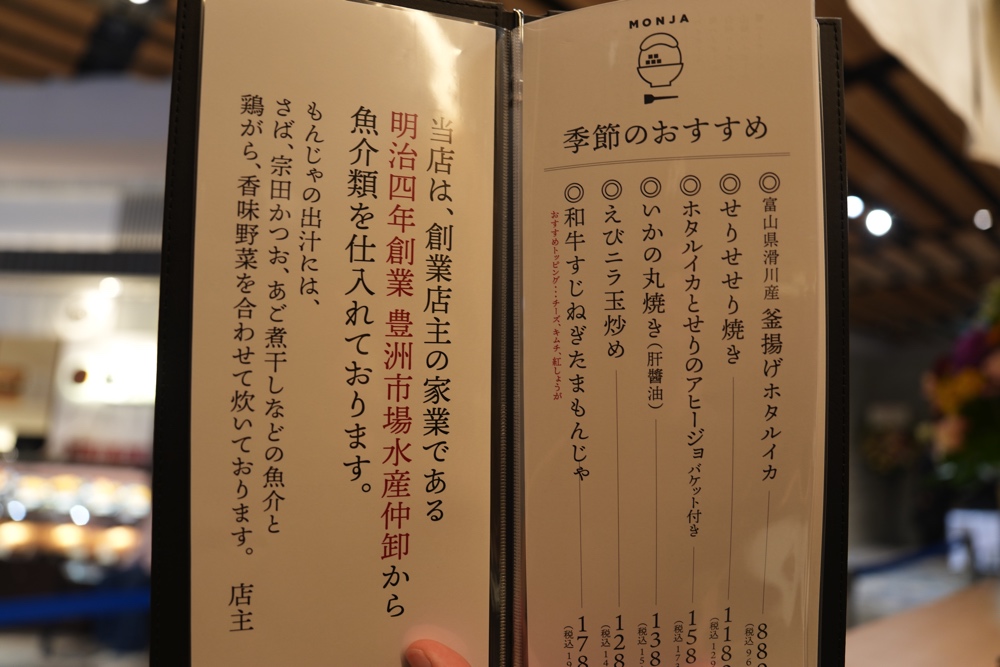 MONJA
季節のおすすめ
◎富山県滑川産 釜揚げホタルイカ
◎せりせせり焼き
◎ホタルイカとせりのアヒージョ バケット付き
◎いかの丸焼き(肝醬油)
◎えびニラ玉炒め
◎和牛すじねぎたまもんじゃ
おすすめトッピング…チーズ、キムチ、紅しょうが
当店は、創業店主の家業である
明治四年創業 豊洲市場水産仲卸から
魚介類を仕入れております。
もんじゃの出汁には、
さば、宗田かつお、あご煮干しなどの魚介と
鶏がら、香味野菜を合わせて炊いております。 店主